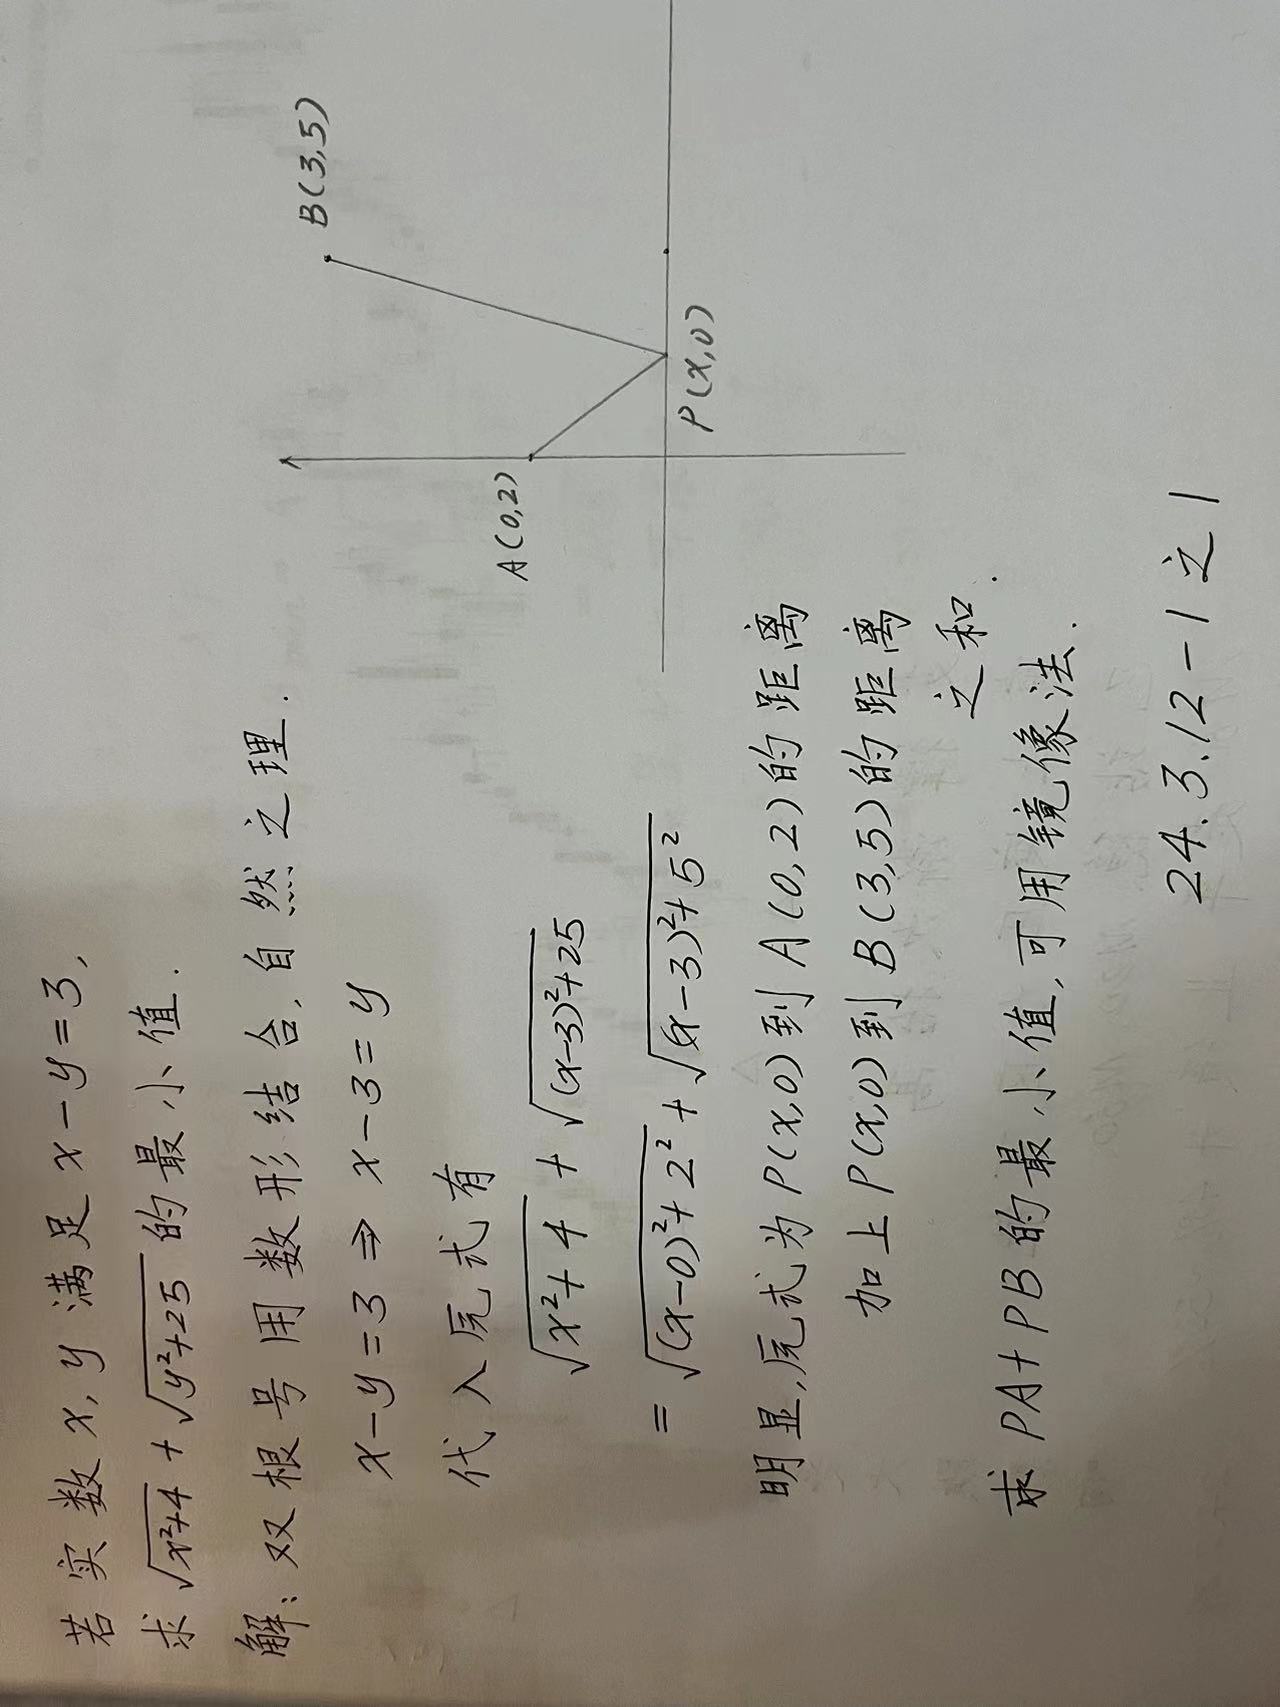 若实数 x, y 满足 x-y=3,
求 √(x²+4) + √(y²+25) 的最小值.
解: 双根号用数形结合, 自然之理.
x-y=3 ⇒ x-3=y
代入原式有
√(x²+4) + √((x-3)²+25)
= √((x-0)²+2²) + √((x-3)²+5²)
明显, 原式为 P(x,0) 到 A(0,2) 的距离
加上 P(x,0) 到 B(3,5) 的距离
之和.
求 PA+PB 的最小值, 可用镜像法.
24.3.12-1之1
B(3,5)
A(0,2)
P(x,0)